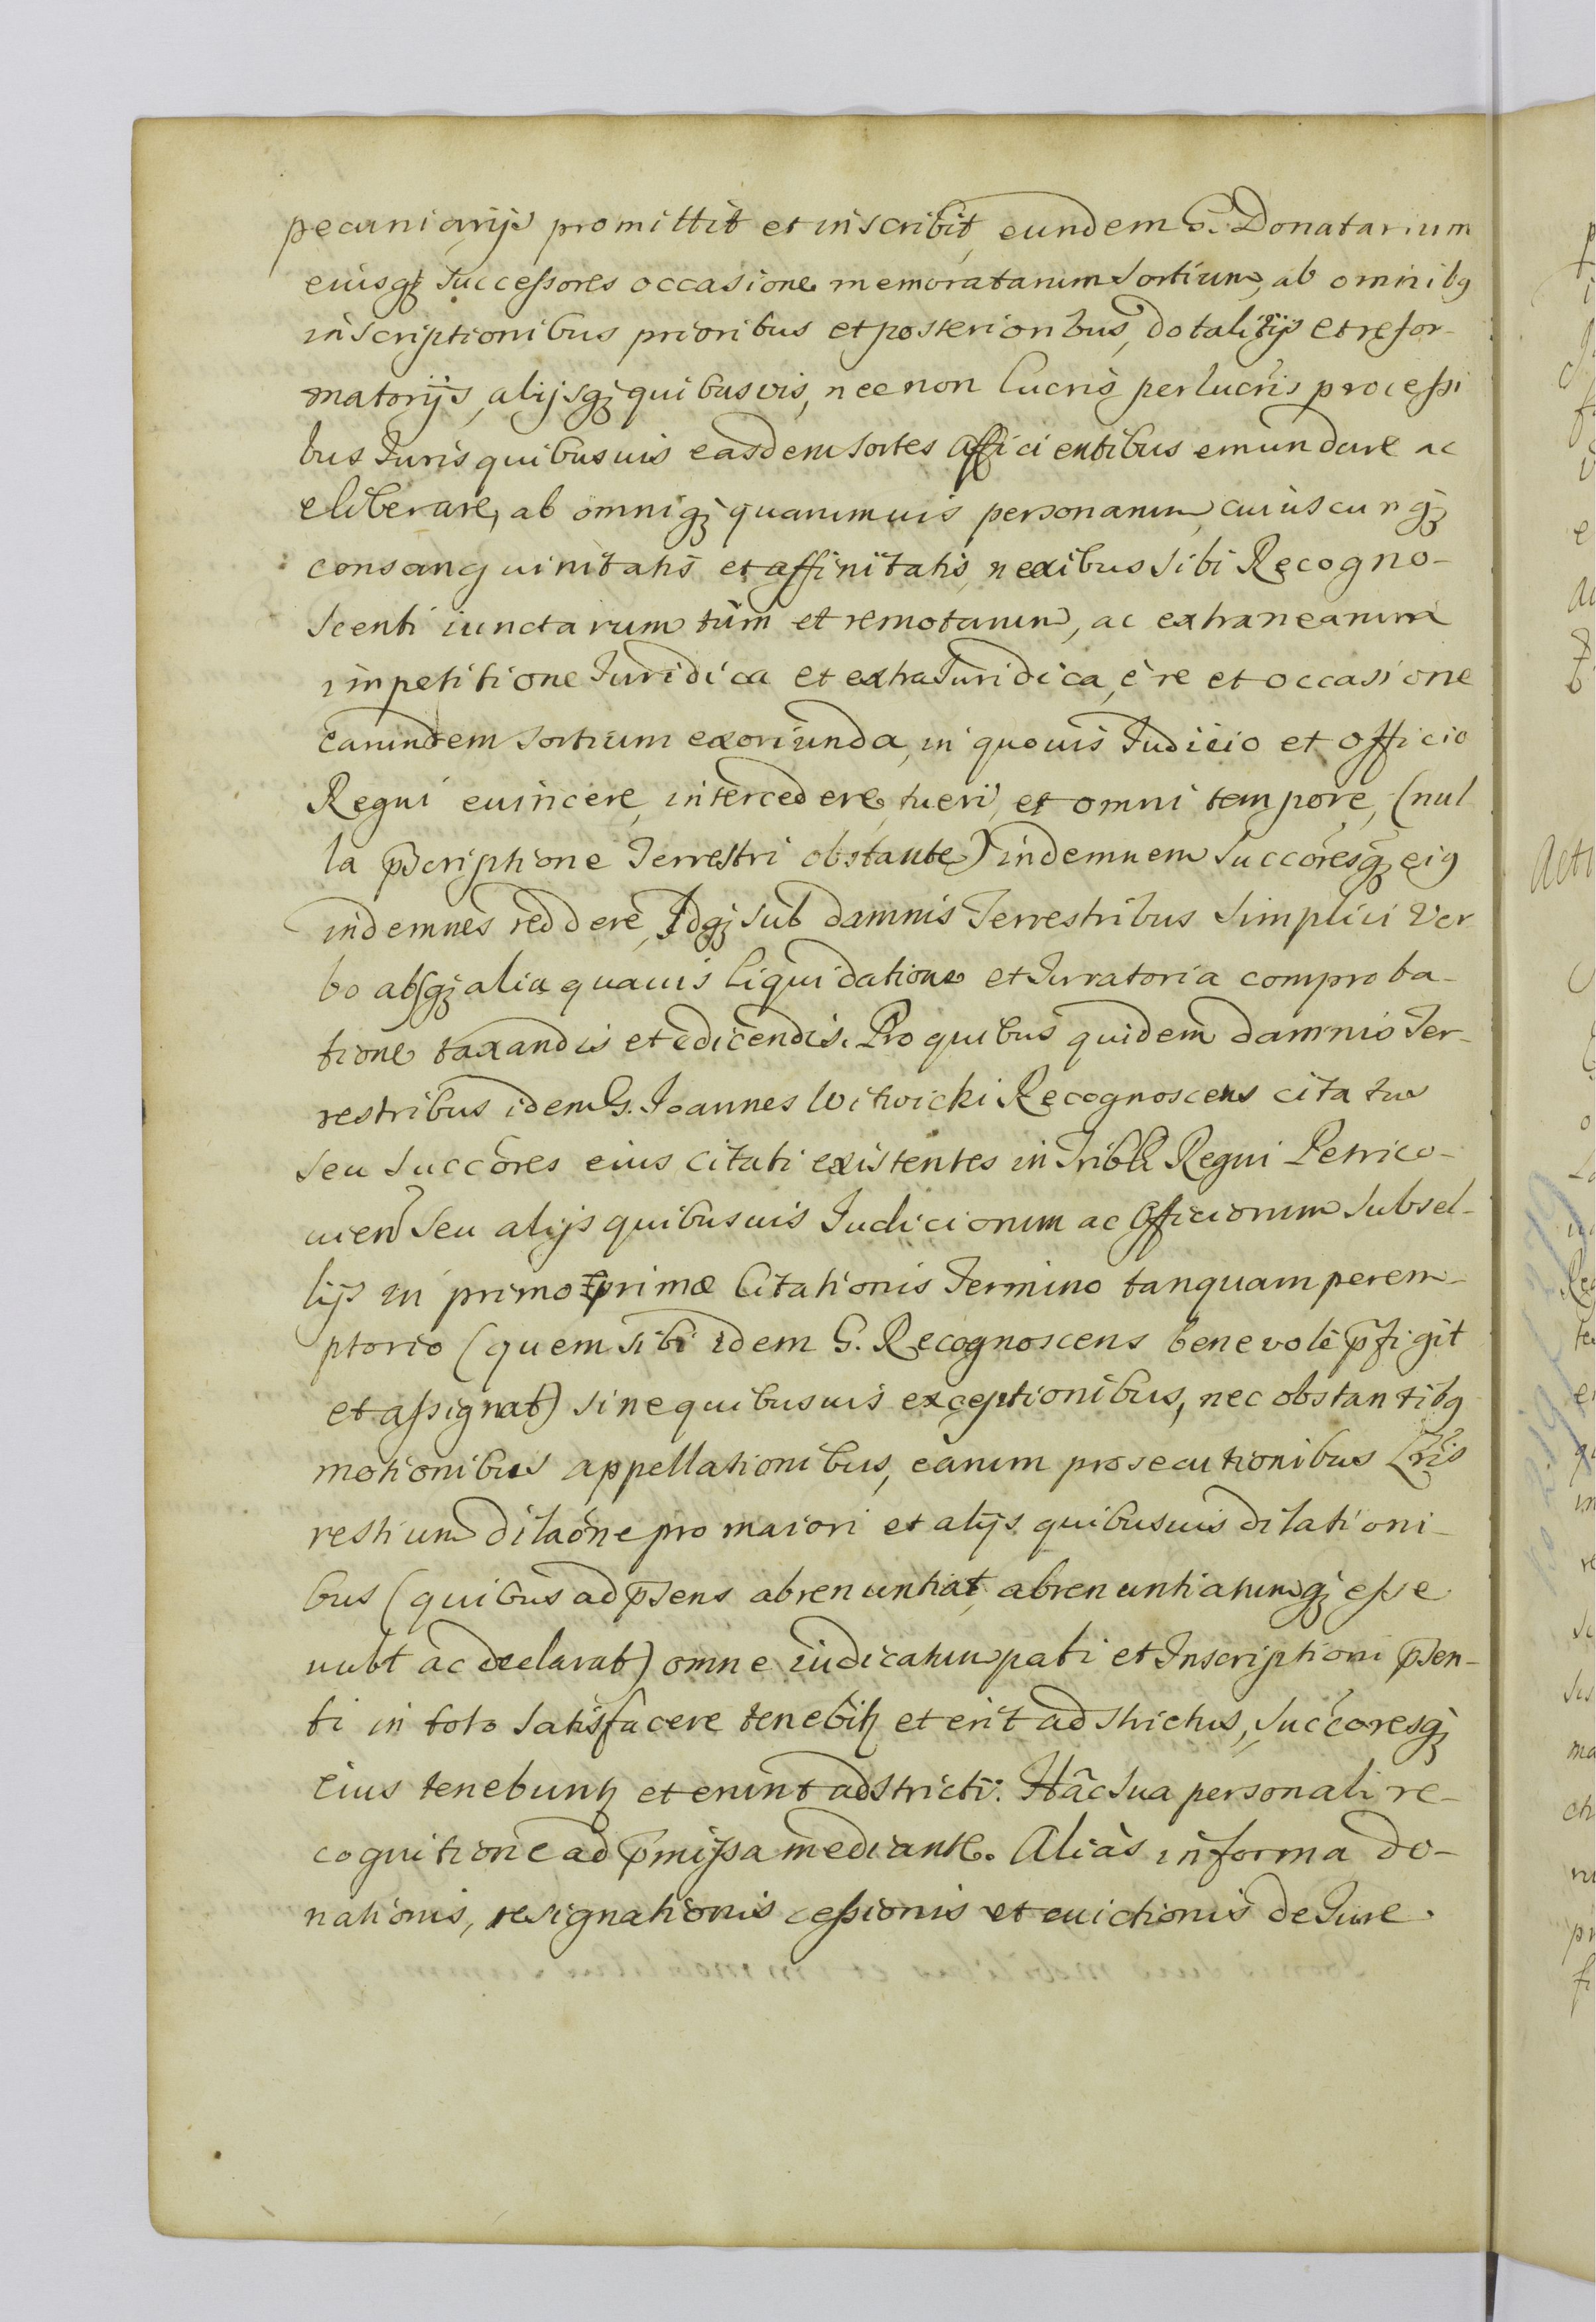 pecuniarijs promittit et inscribit, eundem G. Donatarium
eiusq₃ Successores occasione memoratarum Sortium, ab omnibꝯ
inscriptionibus prioribus et posterioribus, dotalitijs et refor-
matorijs, alijsq₃ quibusvis, nec non lucris perlucris processi
bus Iuris quibusuis easdem Sortes afficientibus emundare ac
eliberare, ab omniq₃ quarumuis personarum, cuiuscunq₃
consanguinitatis et affinitatis, nexibus Sibi Recogno-
Scenti iunctarum tùm et remotarum, ac extranearum
impetitione Iuridica et extraIuridica, è re et occasione
earundem Sortium exoriunda, in quouis Iudicio et officio
Regni euincere, intercedere, tueri, et omni tempore, (nul
la p̄scriptione Terrestri obstante) indemnem Succōresq₃ eiꝯ
indemnes reddere, Idq₃ Sub damnis Terrestribus Simplici Ver
bo absq₃ alia quauis liquidatione et Iuratoria comproba-
tione taxandis et edicendis. Pro quibus quidem damnis Ter-
restribus idem G. Joannes Witwicki Recognoscens citatus
Seu Succōres eius citati existentes in Tribli Regni Petrico-
uien̄ Seu alijs quibusuis Iudiciorum ac Officiorum Subsel-
lijs in primo primæ Citationis Termino tanquam perem-
ptorio (quem Sibi idem G. Recognoscens benevolè p̄figit
et assignat) Sine quibusuis exceptionibus, nec obstantibꝯ
motionibus appellationibus, earum prosecutionibus Lr̄is
restium dilaōne pro maiori et alijs quibusuis dilationi-
bus (quibus ad p̄sens abrenuntiat, abrenuntiatumq₃ esse
uult ac declarat) omne iudicatum pati et Inscriptioni p̄sen-
ti in toto Satisfacere tenebitꝫ et erit adstrictus, Succōresq₃
eius tenebuntꝫ et erunt adstricti. Hâc Sua personali re-
cognitione ad p̄missa mediante. Aliàs in forma do-
nationis, resignationis cessionis et euictionis de Iure.